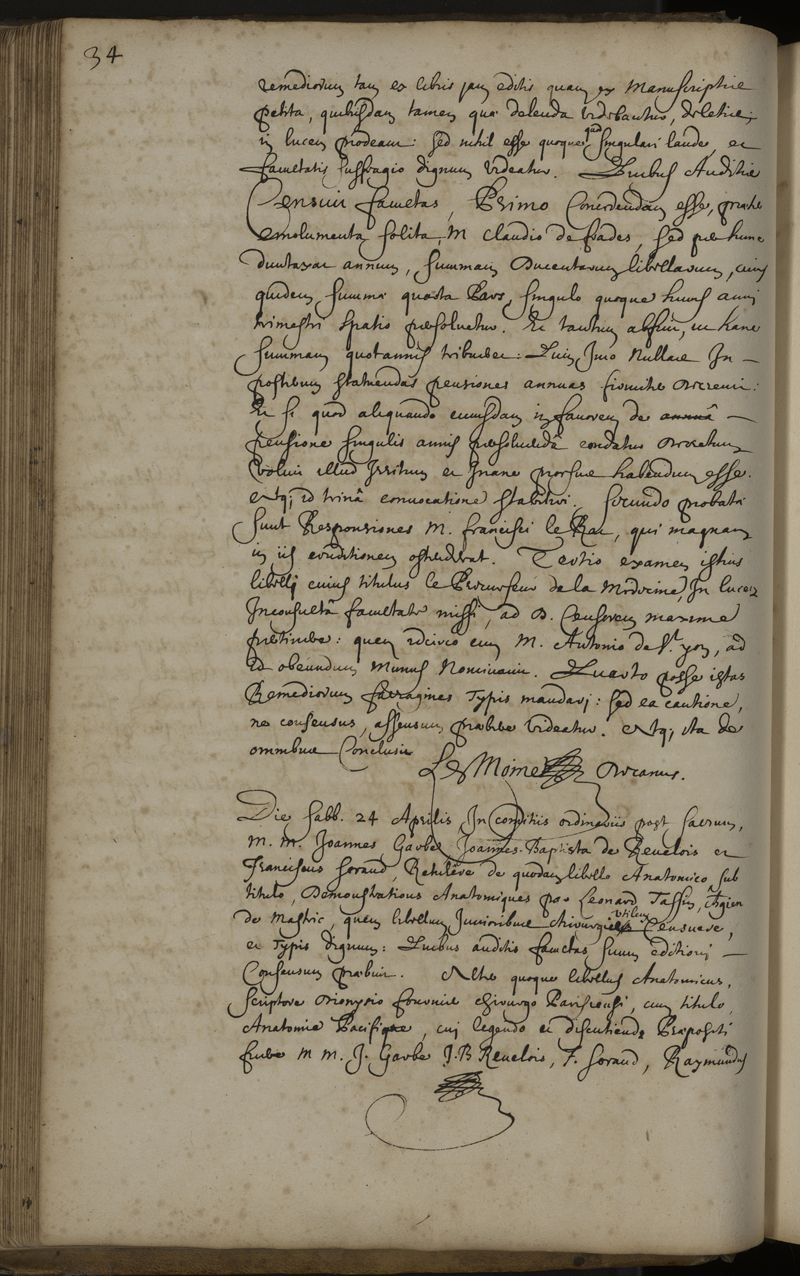 34
remediorum tam ex libris jam editis quam ex Manuscriptis
petita, quibusdam tamen quæ delenda videbantur, deletis,
in lucem prodeant: sed nihil esse quoque quod singulari laude, et
facultatis suffragio dignum videatur. Quibus Auditis
Censuit facultas, Primo Concedendam esse, præter
emolumenta solita, M. Claudio de frades, sed per hunc
duntaxat annum, summam Ducentarum libellarum, cuius
quidem summæ quarta Pars, singulo quoque huius anni
trimestri spatio persolvetur. Et tantum abfuit, ut hanc
summam quotannis tribueret: Quin Imo Nullas In —
posterum statuendas pensiones annuas firmiter Decrevit:
Et si quod aliquando cuiusdam in favorem de annuâ —
pensione singulis annis persolvendâ condatur Decretum
Voluit illud Irritum et Inane prorsus habendum esse.
Atq; id trinâ convocatione stabilivi. Secundo probatæ
sunt Responsiones M. francisci le Rat, qui magnam
in iis eruditionem ostenderat. Tertio examen istius
libelli cuius titulus le Precurseur de la Medecine, In lucem
Inconsultâ facultate missi, ad D. Censorem maxime
pertinere: quem idcirco cum M. Antonio de St. yon, ad
id obeundum Munus Nominavit. Quarto posse istas
Remediorum farragines Typis mandari: sed ea cautione,
ne consensus, assensum præbere videatur. Atq; ita de
omnibus Conclusit
Le Moine Decanus.
Die Sabb. 24 Aprilis, In Comitiis ordinariis post sacrum,
M. M. Joannes Garbe Joannes-Baptista de Revelois et
franciscus soraud, Retulere de quodam libello Anatomico sub
titulo, Demonstrations Anatomiques par Leonard Tassin, Chgien
de Mastric, quem libellum Junioribus chirurgis utilem Censuere,
et Typis dignum: Quibus auditis facultas suum editioni —
Consensum præbuit. Alter quoque libellus Anatomicus,
scriptore Dionysio chirurgo Parisiensi, cum titulo,
Anatomie Pacifique, cui legendo et discutiendo Præpositi
fuere M M. J. Garbe J. B Revelois, F. soraud, Raymundus